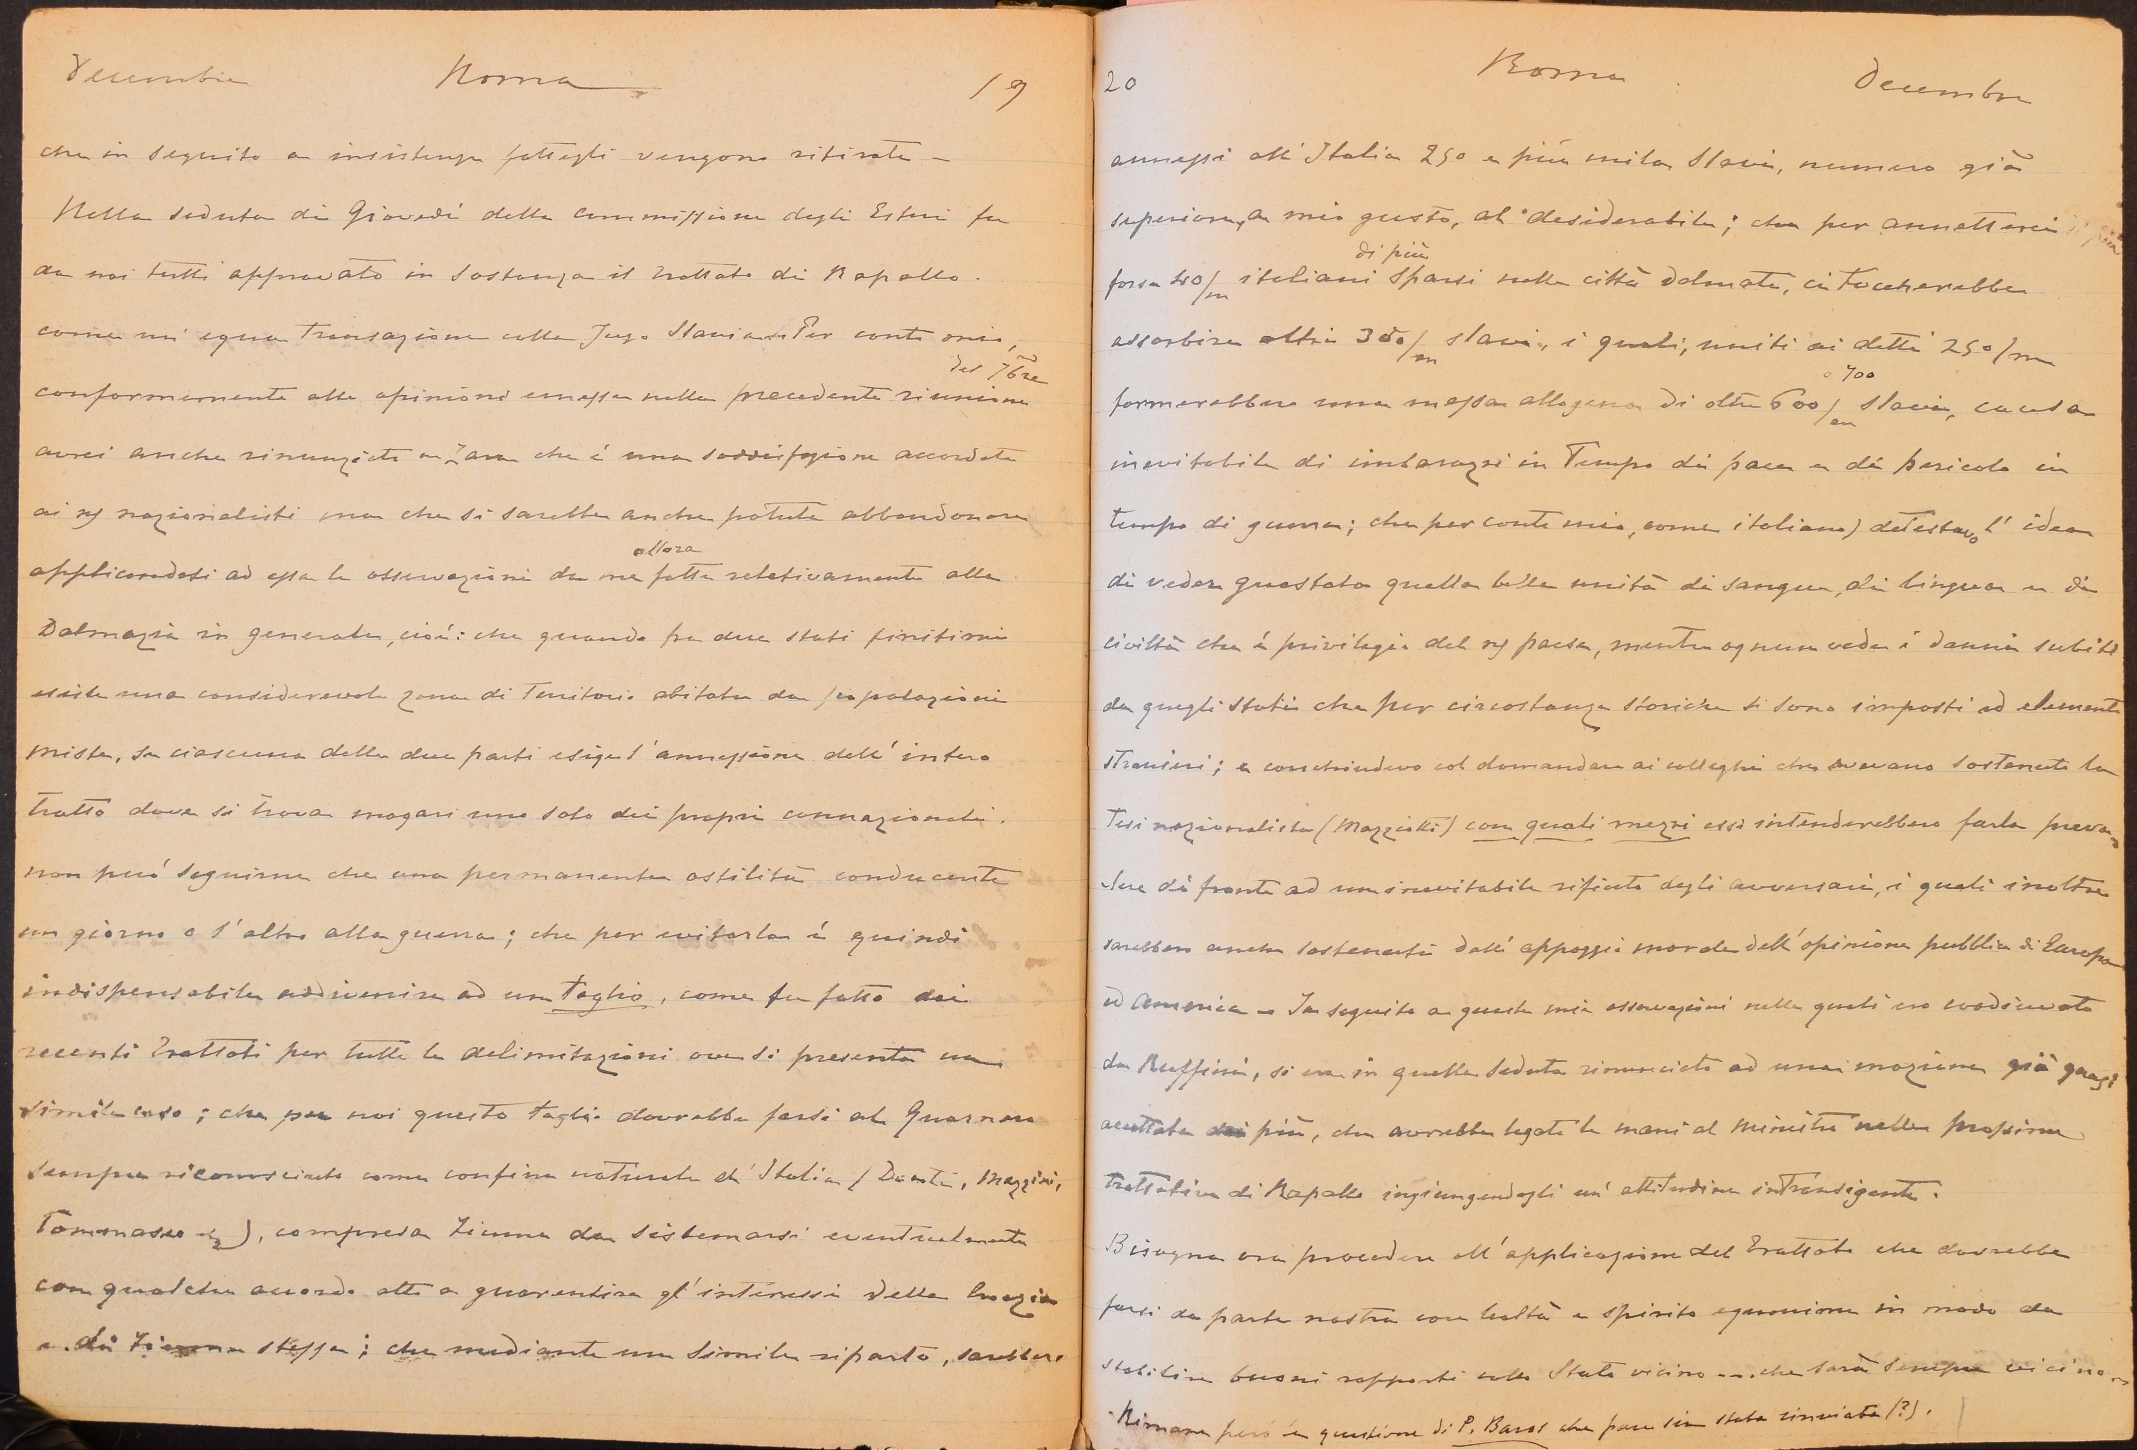 Decembre Roma 19
che in seguito a insistenze fattegli vengono ritirate –
Nella seduta di Giovedì della commissione degli Esteri fu
da noi tutti approvato in sostanza il trattato di Rapallo.
come un' equa transazione colla Jugo Slavia. Per conto mio,
del 7bre
conformemente alle opinioni emesse nella precedente riunione
avrei anche rinunziato a Zara che è una soddisfazione accordata
ai nazionalisti ma che si sarebbe anche potuta abbandonare
allora
applicandosi ad essa le osservazioni da me fatte relativamente alla
Dalmazia in generale, cioè: che quando fra due stati finitimi
esiste una considerevole zona di territorio abitata da popolazioni
miste, se ciascuna delle due parti esige l'annessione dell'intero
tratto dove si trova magari uno solo dei propri connazionali.
non può seguirne che una permanente ostilità conducente
un giorno o l'altro alla guerra; che per evitarla è quindi
indispensabile addivenire ad un taglio, come fu fatto dai
recenti trattati per tutte le delimitazioni ove si presenta un
simile caso; che per noi questo taglio dovrebbe farsi al Quarnero
sempre riconosciuto come confine naturale d'Italia (Dante, Mazzini,
Tommaseo), compresa Fiume da sistemarsi eventualmente
con qualche accordo atto a guarentire gl'interessi della Croazia
e di Fiume stessa; che mediante un simile riparto, sarebbero
20 Roma Decembre
annessi all'Italia 250 e più mila Slavi, numero già
superiore, a mio gusto, al desiderabile; che per annetterci di più
di più
forse 40/m italiani sparsi nelle città Dalmate, ci toccherebbe
assorbire altri 300/m slavi, i quali, uniti ai detti 250/m
o 700
formerebbero una massa allogena di oltre 600/m slavi, causa
inevitabile di imbarazzi in tempo di pace e di pericolo in
tempo di guerra; che per conto mio, come italiano) detestavo l'idea
di vedere guastata quella bella unità di sangue, di lingua e di
civiltà che è privilegio del paese, mentre ognun vede i danni subiti
da quegli stati che per circostanze storiche si sono imposti ad elementi
stranieri; e conchiudevo col domandare ai colleghi che avevano sostenuto la
tesi nazionalista (Mazziotti) con quali mezzi essi intenderebbero farla preva-
lere di fronte ad un inevitabile rifiuto degli avversari, i quali inoltre
sarebbero anche sostenuti dall'appoggio morale dell'opinione pubblica di Europa
ed America – In seguito a queste mie osservazioni nelle quali ero coadiuvato
da Ruffini, si era in quella seduta rinunciato ad una mozione già quasi
accettata dai più, che avrebbe legato le mani al Ministro nelle prossime
trattative di Rapallo ingiungendogli un'attitudine intransigente.
Bisogna ora procedere all'applicazione del Trattato che dovrebbe
farsi da parte nostra con lealtà e spirito equanime in modo da
stabilire buoni rapporti collo Stato vicino .... che sarà sempre vicino –
Rimane però la questione di P. Baros che pare sia stata rinviata (?).